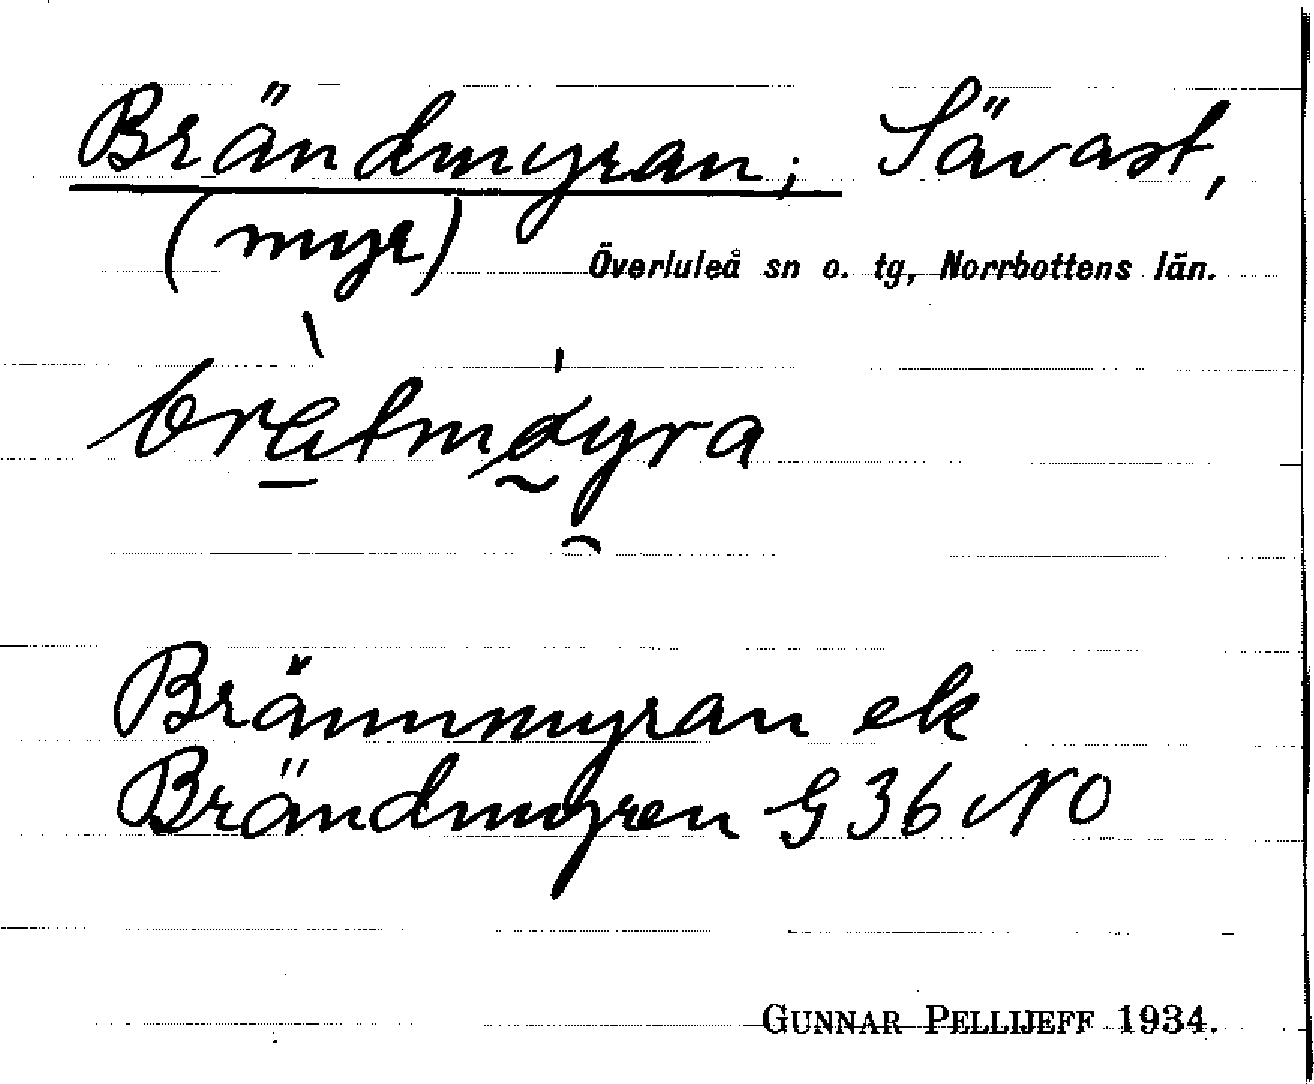 Brändmyran; Sävast,
(myr)
Överluleå sn o. tg, Norrbottens län.
Brännmyran ek
Brändmyren G 36 NO
GUNNAR PELLIJEFF 1934.